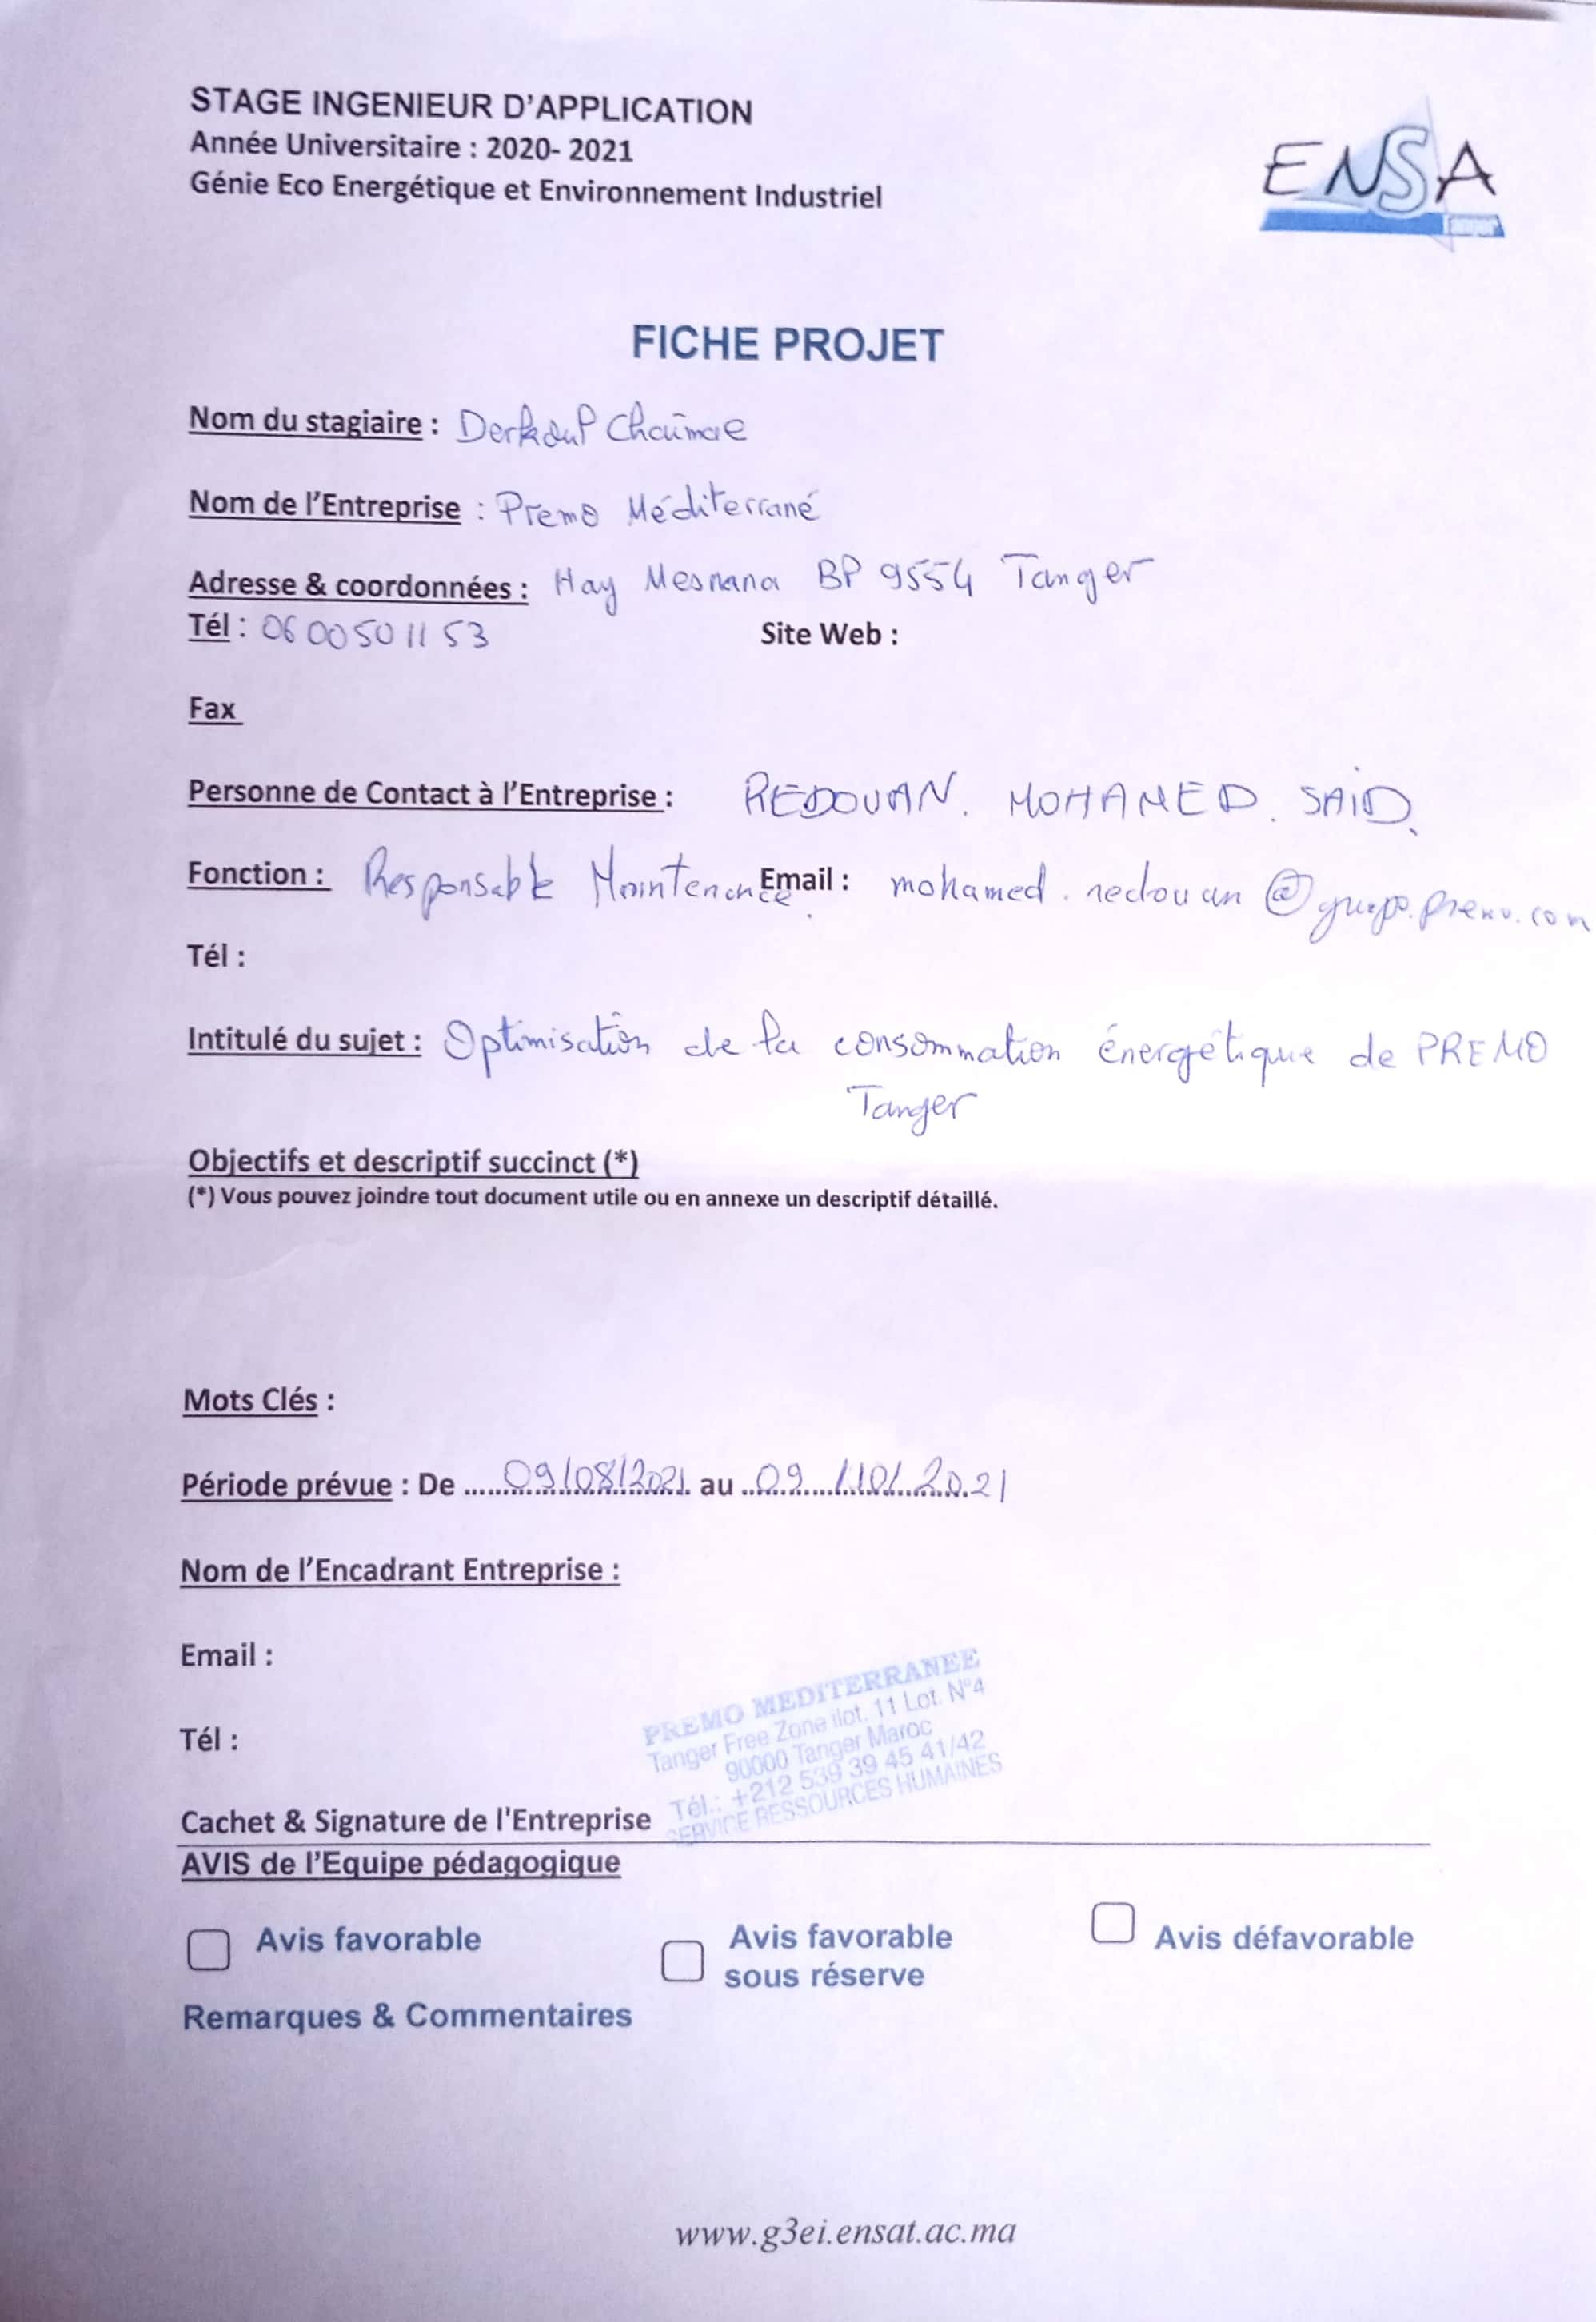 STAGE INGENIEUR D'APPLICATION
Année Universitaire : 2020- 2021
Génie Eco Energétique et Environnement Industriel
ENSA
Tanger
FICHE PROJET
Nom du stagiaire : Derkaoui Chaimae
Nom de l'Entreprise : Premo Méditerrané
Adresse & coordonnées : Hay Mesnana BP 9554 Tanger
Tél : 06 00 50 11 53 Site Web :
Fax
Personne de Contact à l'Entreprise : REDOUAN. MOHAMED. SAID.
Fonction : Responsable Maintenance Email : mohamed.redouan@grupo.premo.com
Tél :
Intitulé du sujet : Optimisation de la consommation énergétique de PREMO
Tanger
Objectifs et descriptif succinct (*)
(*) Vous pouvez joindre tout document utile ou en annexe un descriptif détaillé.
Mots Clés :
Période prévue : De ......09/08/2021. au ..09../10/.2021
Nom de l'Encadrant Entreprise :
Email :
PREMO MEDITERRANEE
Tanger Free Zone ilot. 11 Lot. N°4
90000 Tanger Maroc
Tél :
Tél.: +212 539 39 45 41/42
SERVICE RESSOURCES HUMAINES
Cachet & Signature de l'Entreprise
AVIS de l'Equipe pédagogique
Avis favorable
Avis favorable
sous réserve
Avis défavorable
Remarques & Commentaires
www.g3ei.ensat.ac.ma